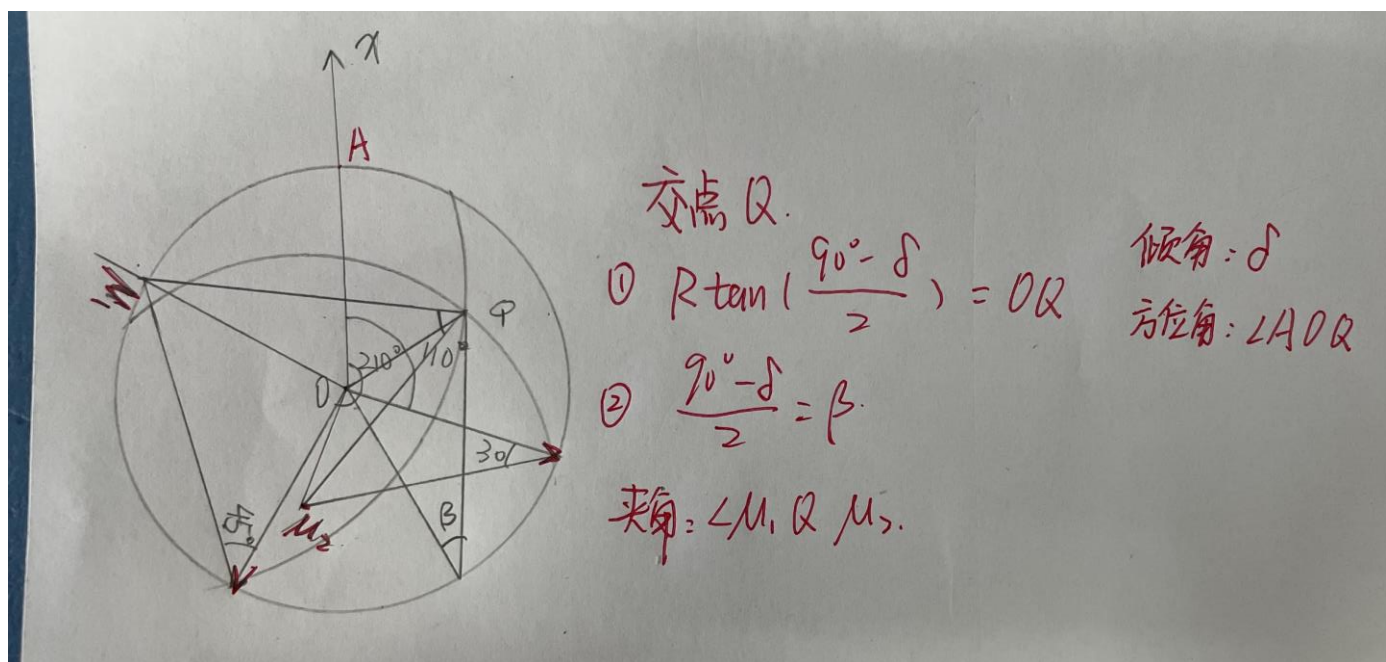 x
A
M₁
Q
O
210°
110°
30°
45°
M₂
β
交点 Q.
① R tan( (90°-δ)/2 ) = OQ
② (90°-δ)/2 = β.
夹角: ∠M₁ Q M₂.
倾角: δ
方位角: ∠AOQ